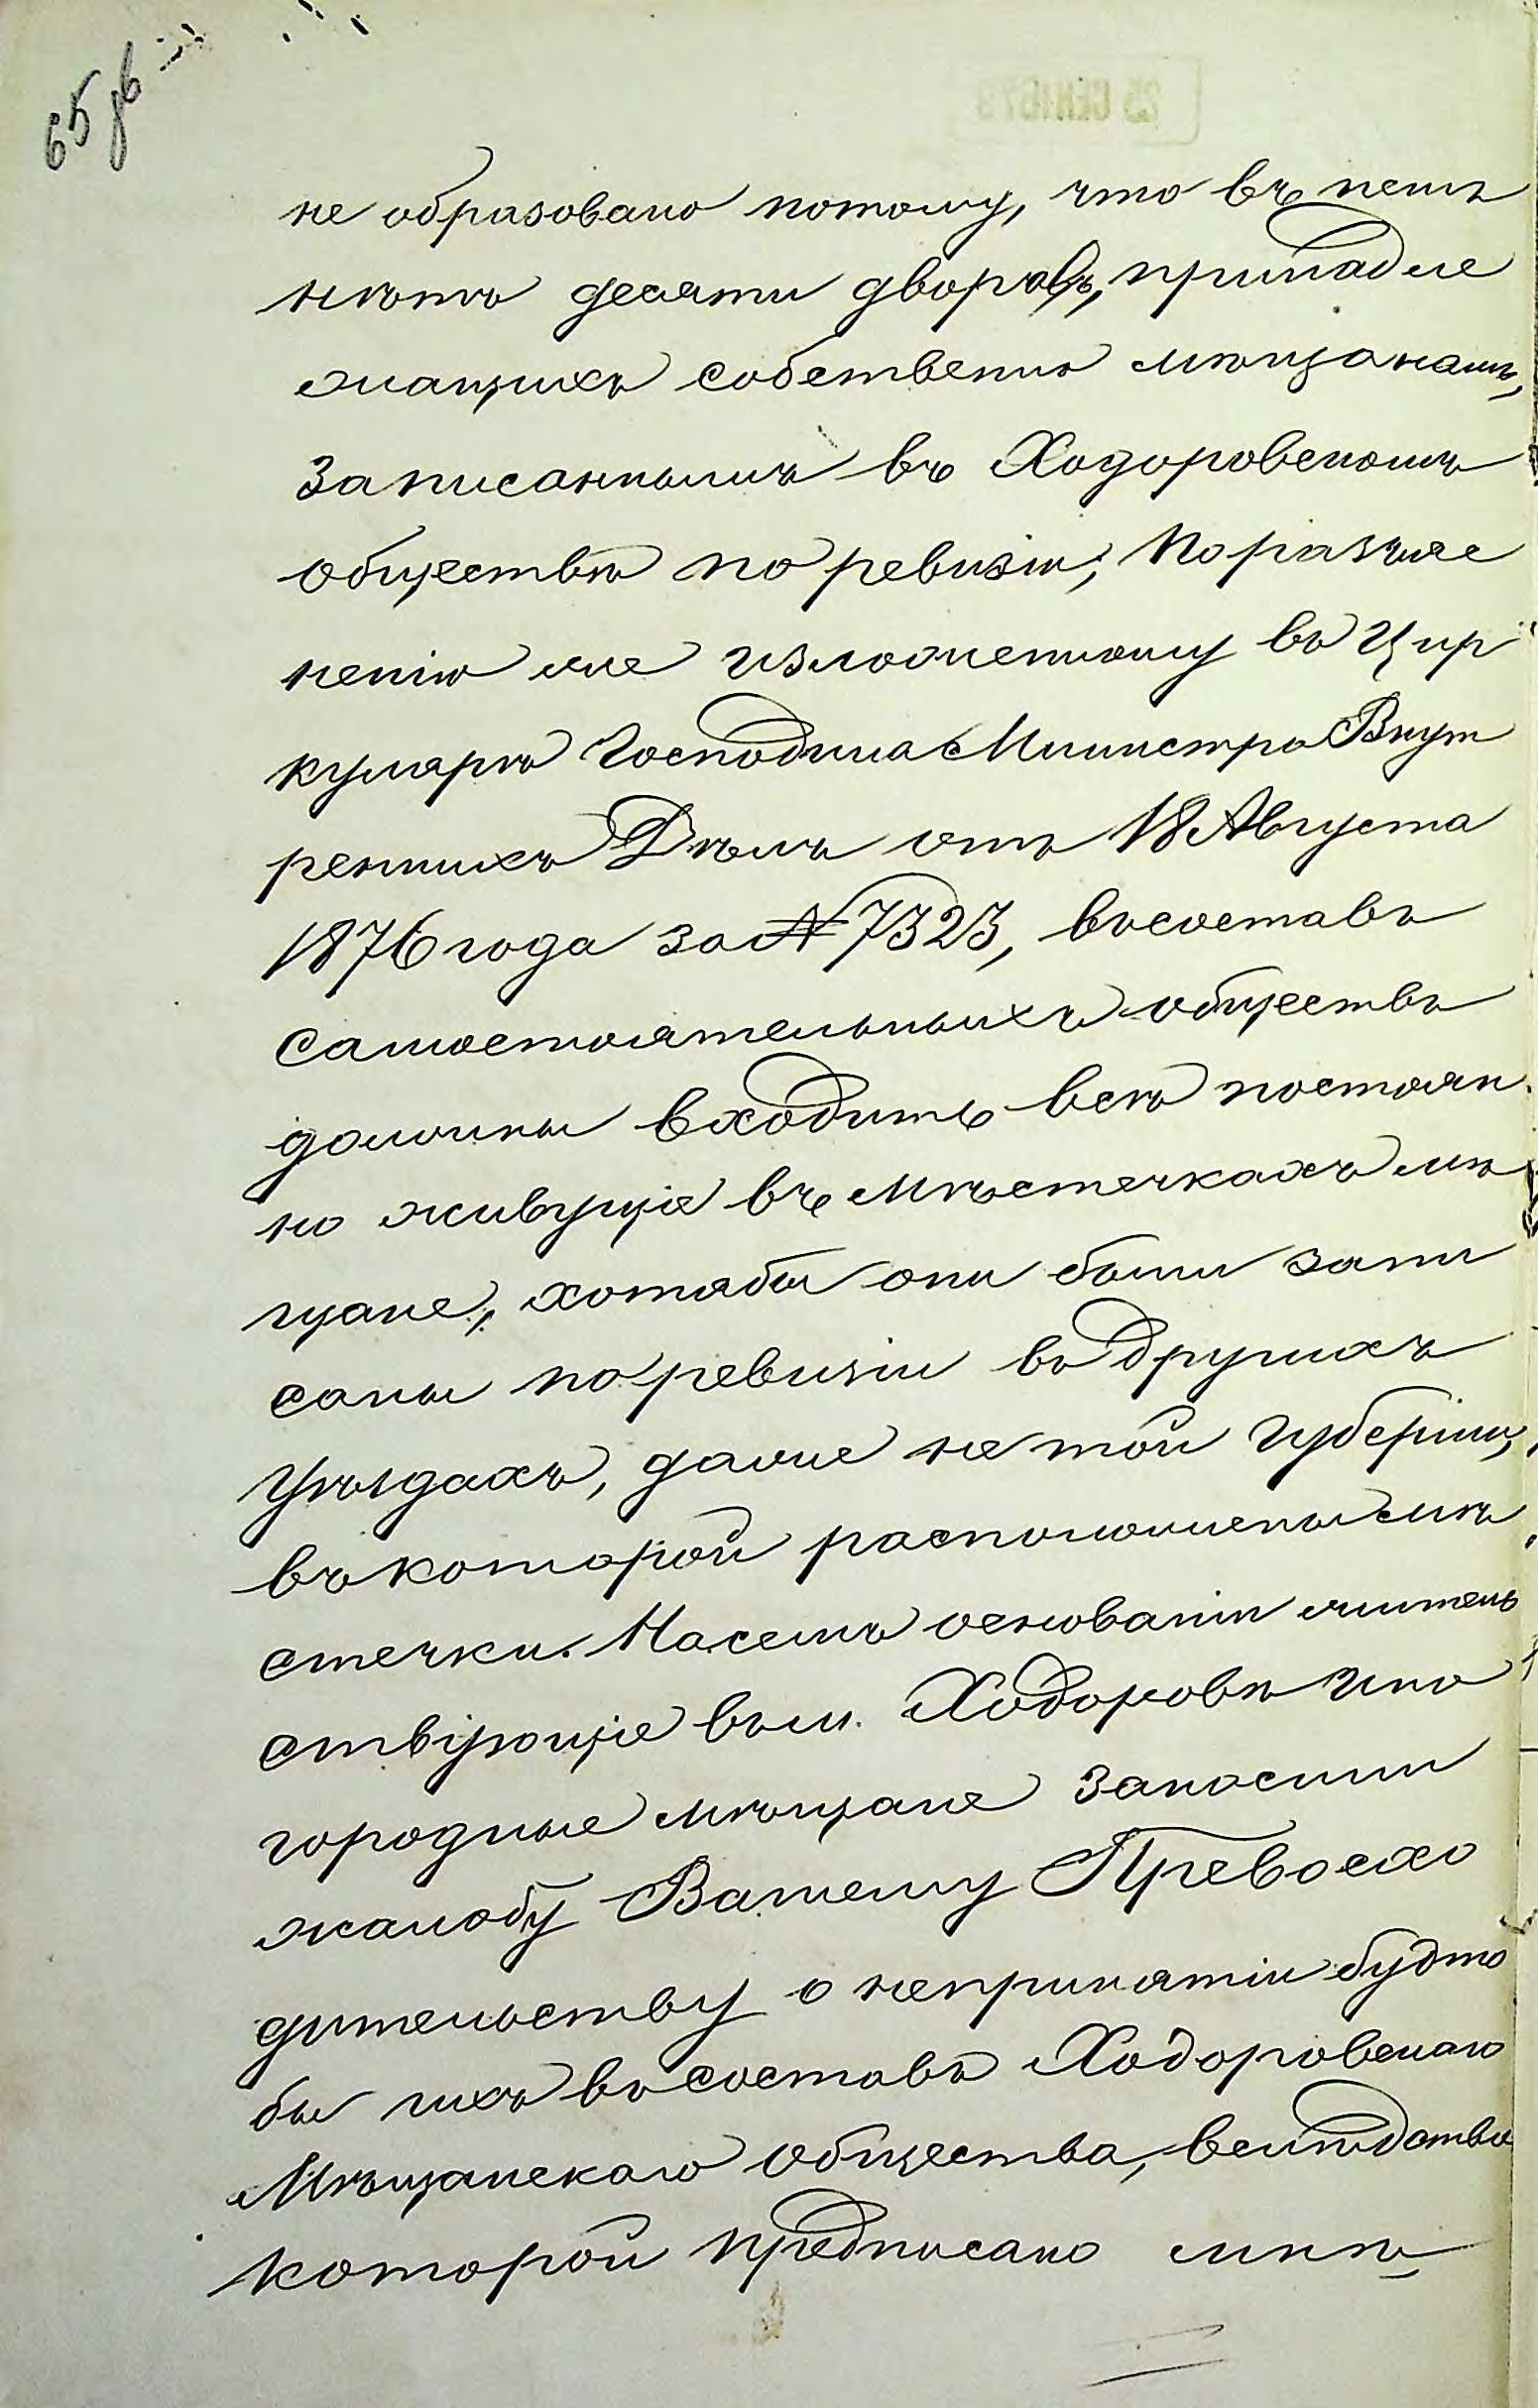 65 об
не образовано потому, что въ немъ
нѣтъ десяти дворовъ, принадле
жащихъ собственно мѣщанамъ,
записаннымъ въ Ходоровскомъ
обществѣ по ревизіи; по разъяс
ненію же изложенному въ Цир
кулярѣ Господина Министра Внут
реннихъ Дѣлъ отъ 18 Августа
1876 года за № 7323, въ составъ
самостоятельныхъ обществъ
должны входить всѣ постоян
но живущіе въ мѣстечкахъ мѣ
щане, хотябы они были запи
саны по ревизіи въ другихъ
уѣздахъ, даже не той губерніи,
въ которой расположены мѣ
стечки. На семъ основаніи жител
ствующіе въ м. Ходоровѣ ино
городные мѣщане заносили
жалобу Вашему Превосхо
дительству о непринятіи будто
бы ихъ въ составъ Ходоровскаго
Мѣщанскаго общества, вслѣдствіе
которой предписано мнѣ